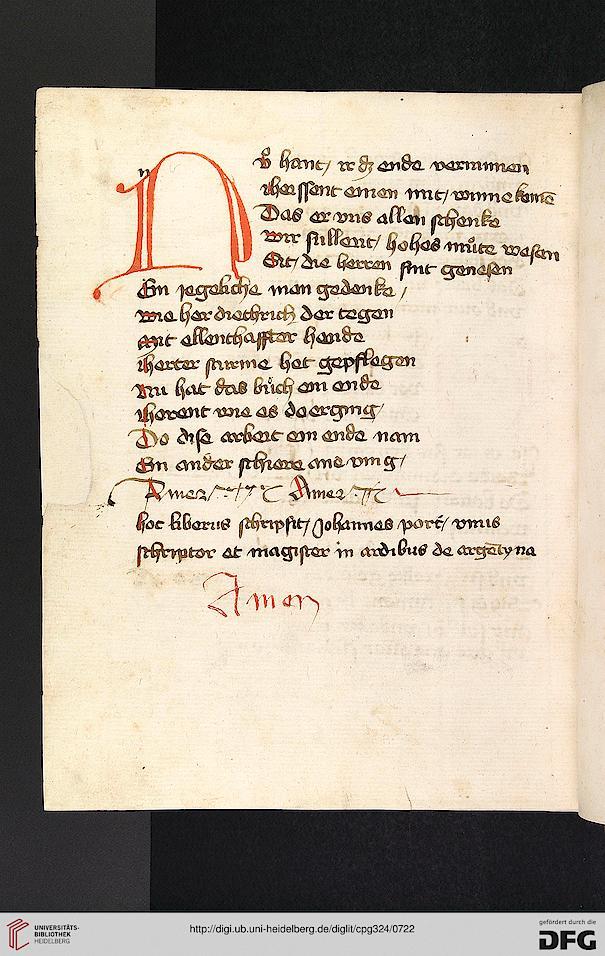 Nv̊ hant / ir dz ende vernūmen
Heissent einen mit / winne komē
Das er vns allen schenke
Wir sullent / hohes můte wesen
Sit / die herren sint genesen
Ein iegeliche man gedenke /
wie her diethrich der tegen
Mit ellenthaffter hende
Herter sturme het gepflegen
Nu hat das bůch ein ende
Horent wie es do erging /
Do dise arbeit ein ende nam
Ein ander schiere ane ving /
Amen Amen
hoc liberus schripsit / Johannes port / vnus
schriptor et magister in ardibus de argētyna
Amen
UNIVERSITÄTS-
BIBLIOTHEK
HEIDELBERG
http://digi.ub.uni-heidelberg.de/diglit/cpg324/0722
gefördert durch die
DFG